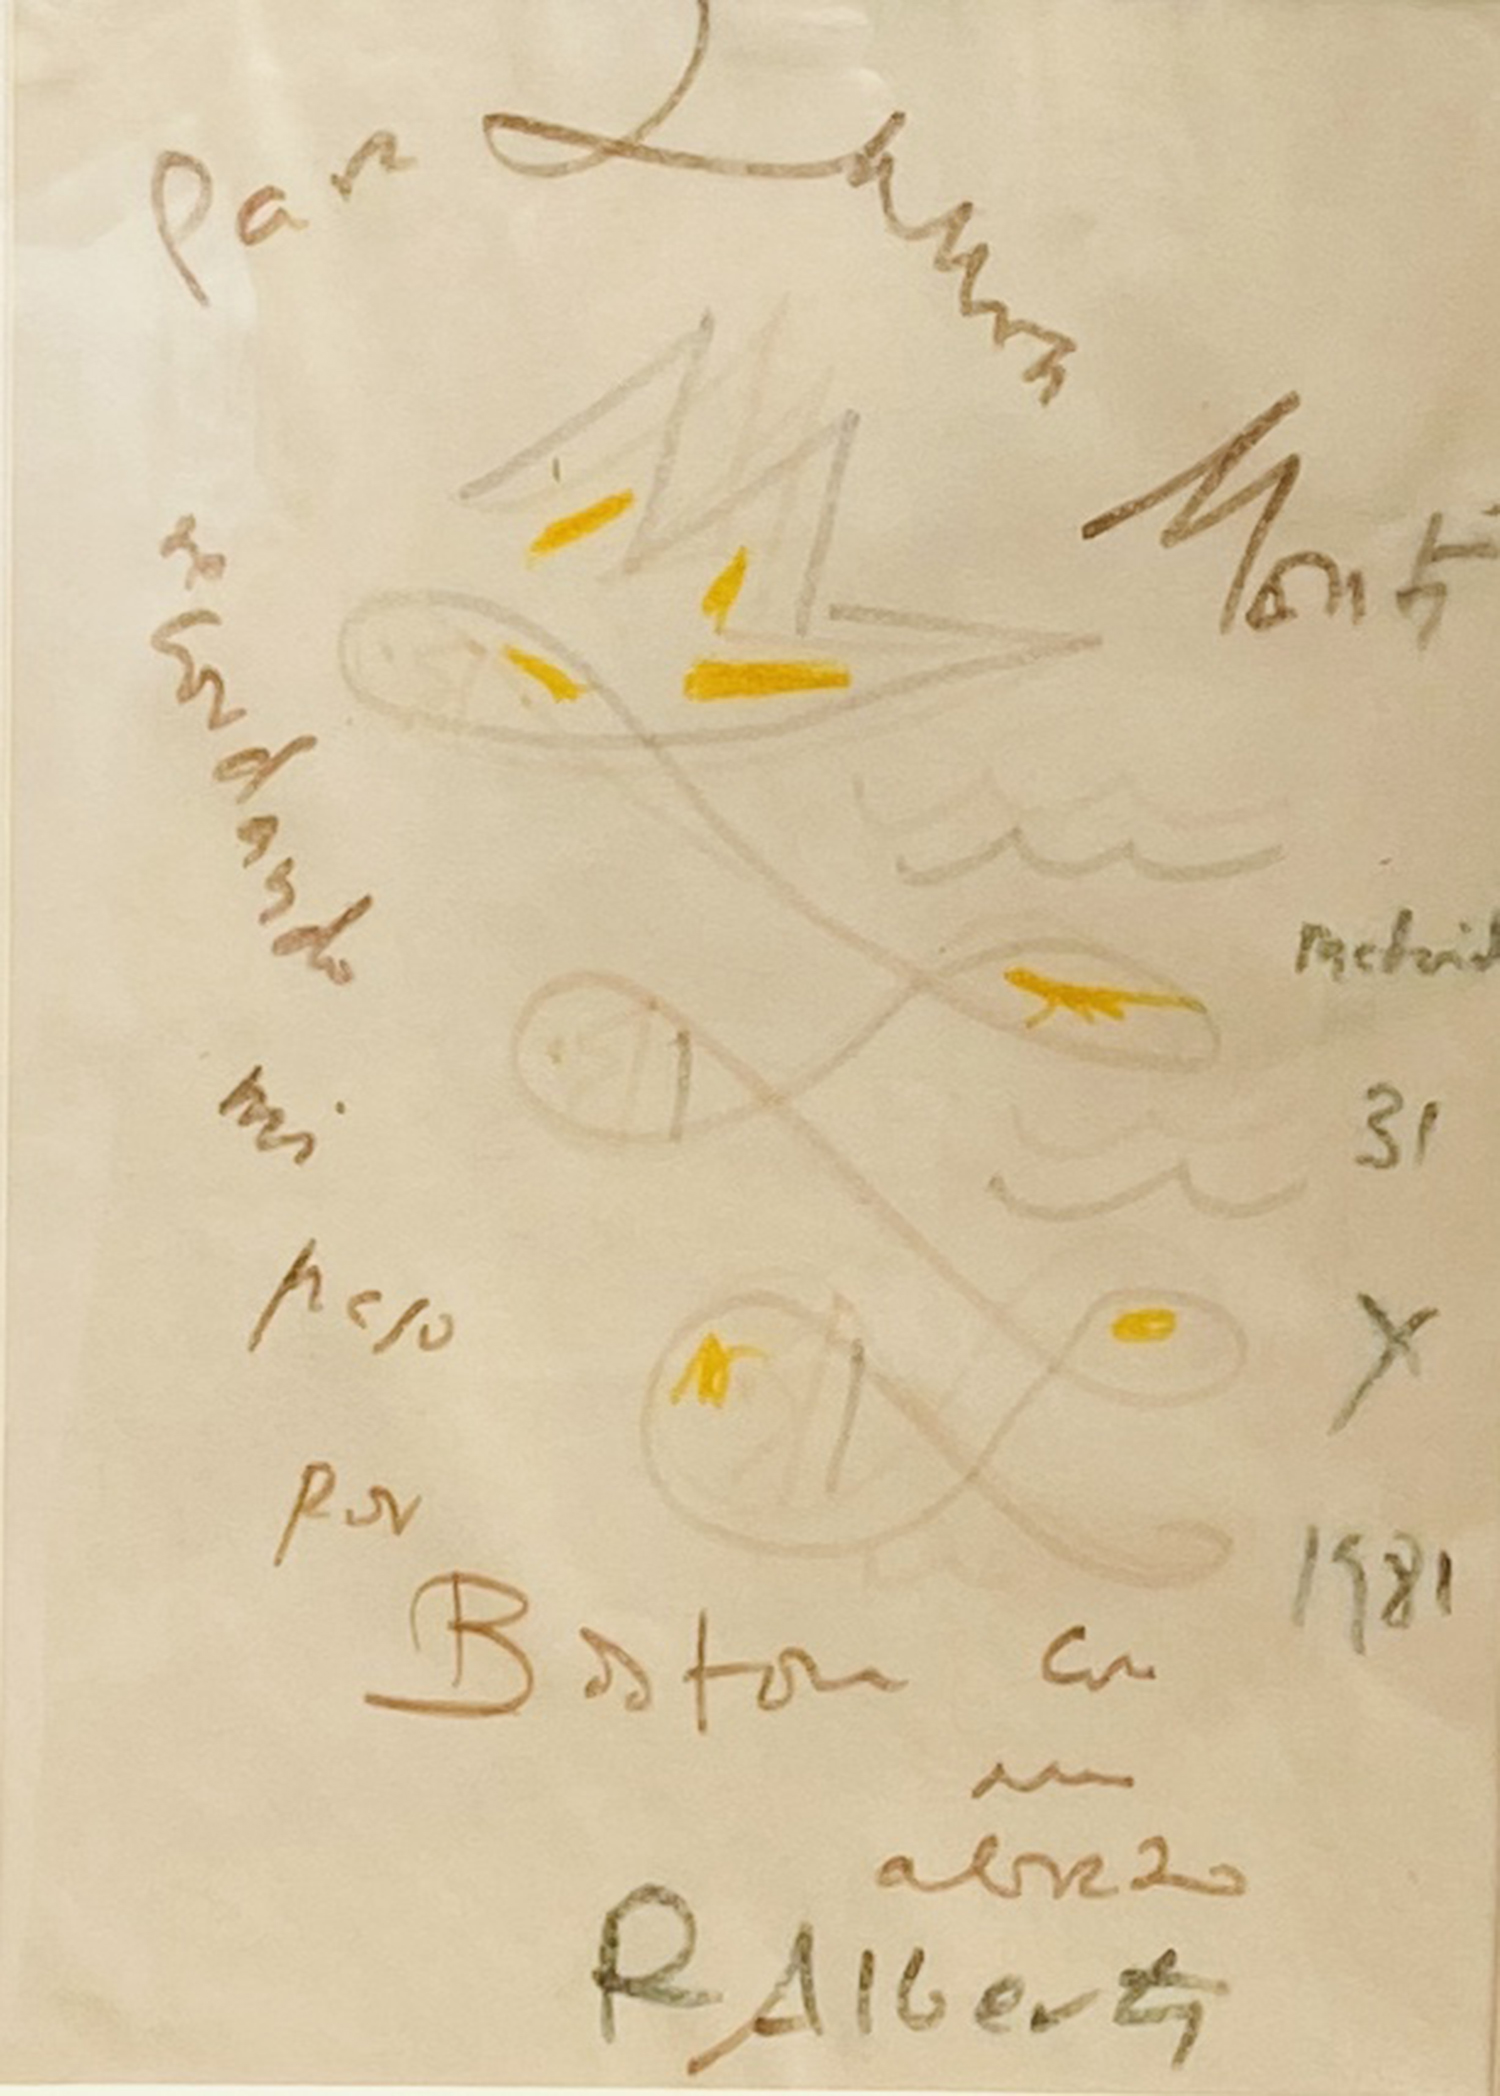 Para
Monti
recordando
mi
paso
por
Boston con
un
abrazo
R Alberti
Madrid
31
X
1981